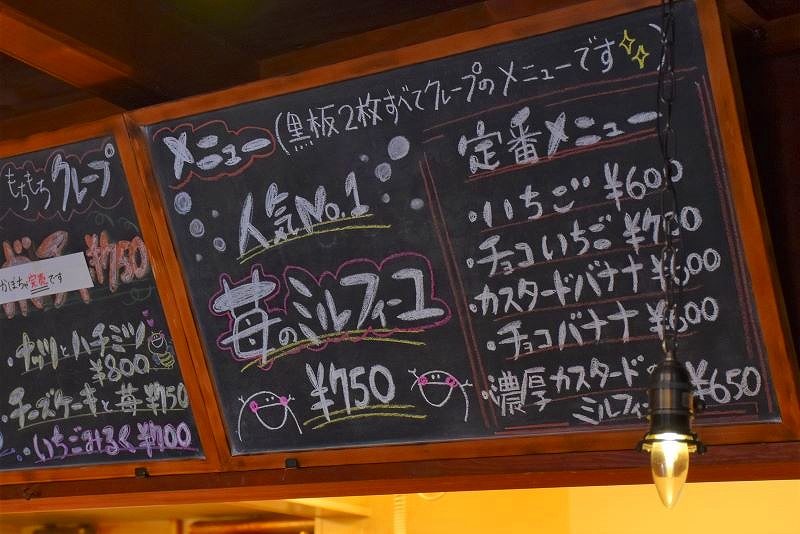 もちもち
クレープ
¥750
かぼちゃ完売です
・ナッツとハチミツ
¥800
・チーズケーキと苺 ¥750
・いちごみるく ¥700
メニュー(黒板2枚すべてクレープのメニューです)
人気No.1
苺のミルフィーユ
¥750
定番メニュー
・いちご ¥600
・チョコいちご ¥700
・カスタードバナナ ¥600
・チョコバナナ ¥600
・濃厚カスタードの
ミルフィ ¥650